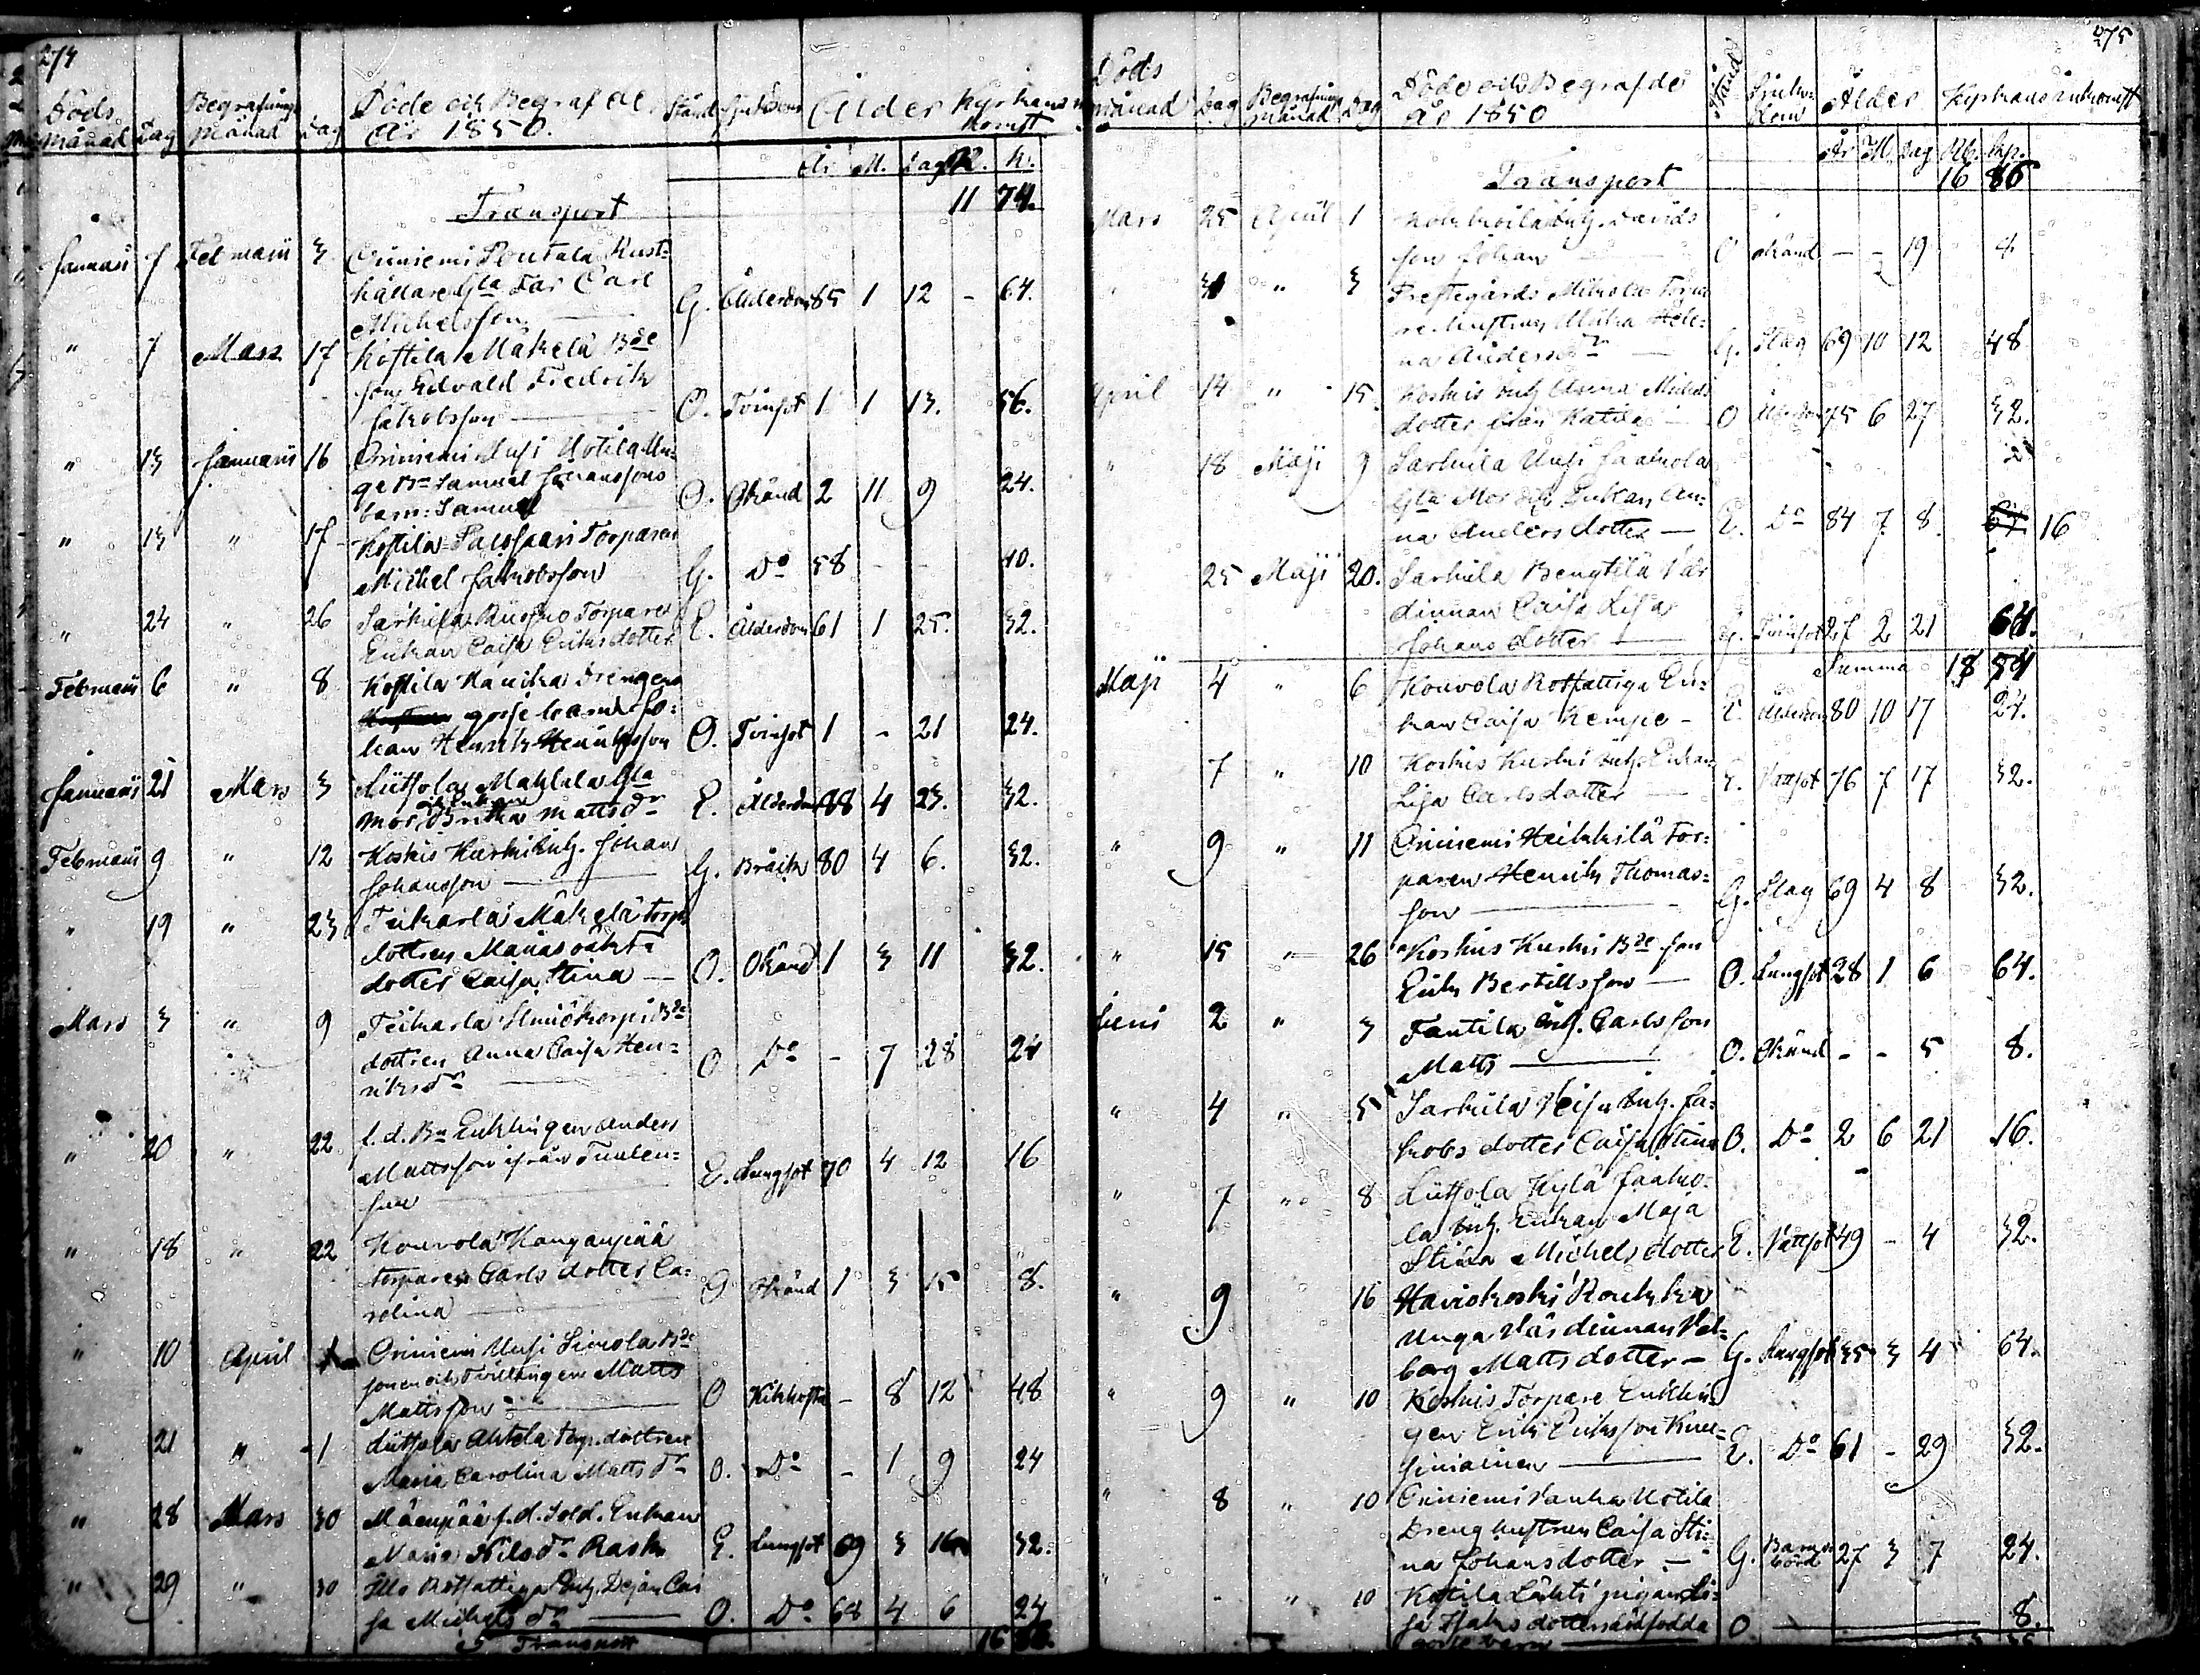 274
Döds månad Dag Begrafnings månad Dag Döde och Begrafde År 1850. Stånd Sjukdom Ålder Kyrkans inkomst
År M. Dag R. K.
Transport 11 74.
Januari 7 Februarii 3 Oriniemi Routala Rust-
hållare Gla Far Carl
Michelsson G. Ålderdom 85 1 12 - 64.
" 7 Mars 17 Kostila Mäkelä Bde
son Edvald Fredrik
Jakobsson O. Tvinsot 1 1 13. 56.
" 13 Januarii 16 Oriniemi Uusi Uotila Un-
ge Bn Samuel Johanssons
barn: Samuel O. Okänd 2 11 9 24.
" 13 " 17 Kostila Torparen
Michel Jakobsson G. Do 58 - - 40.
" 24 " 26 Sarkila Torpare
Enkan Caisa Eriksdotter E. Ålderdom 61 1 25. 32.
Februarii 6 " 8 Kostila Drengens
gossebarn Jo-
han Henrik Henriksson O. Tvinsot 1 - 21 24.
Januarii 21 Mars 3 Liitsola Makkala Gla
Mor och Enkan Britha Mattsdr E. Ålderdom 88 4 23. 32.
Februarii 9 " 12 Koskis Kurki Inh. Johan
Johansson G. Bråck 80 4 6. 32.
" 19 " 23 Teikarla Mäkelä torp.
dottren Marias oäkta
dotter Caisa Stina O. Okänd 1 3 11 32.
Mars 3 " 9 Teikarla Bde
dottren Anna Caisa Hen-
riksdr O Do - 7 28 24
" 20 " 22 f.d. Bn Enklingen Anders
Mattsson ifrån Tuulen-
suu E. Lungsot 70 4 12 16
" 18 " 22 Kouvola Kanganpää
torparen Carls dotter Ca-
rolina O Okänd 1 3 15 8.
" 10 April 1 Oriniemi Uusi Simola Bde
sonen och Tvillingen Matts
Mattsson O Kikhosta - 8 12 48
" 21 " 1 Liitsola Ahtola torp. dottren
Maria Carolina Mattsdr O. Do - 1 9 24
" 28 Mars 30 Mäenpää f.d. Sold. Enkan
Maria Nilsdr Rask E. Lungsot 69 3 16 32.
" 29 " 30 Rotfattiga Inh. Pigan Cai
sa Michelsdr O. Do 68 4 6 24
Transport 16 86.
275
Döds månad Dag Begrafnings månad Dag Döde och Begrafde År 1850 Stånd Sjukdom Ålder Kyrkans inkomst
År M. Dag Rb. Kp.
Transport 16 86
Mars 25 April 1 Inh. Davids
son Johan O Okänd - - 19 8
" 31 " 3 Prestegårds Mikola Torpa
re hustrun Maria Hele-
na Andersdr G. Slag 69 10 12 48
April 14 " 15. Koskis Inh Anna Michels
dotter från Kattila O Ålderdom 75 6 27 32.
" 18 Maji 9 Sarkila Uusi Jaakola
Gla Mor och Enkan An-
na Andersdotter E. Do 84 7 8. 64 16
" 25 Maji 20. Sarkila Bengtilä Vär
dinnan Caisa Lisa
Johansdotter G. Tvinsot 27 2 21 64.
Summa 18 54
Maji 4 " 6 Kouvola Rotfattiga En-
kan Caisa Kempe E. Ålderdom 80 10 17 24.
" 7 " 10 Koskis Kurki Inh. Enkan
Lisa Carlsdotter E. Vattsot 76 7 17 32.
" 9 " 11 Oriniemi Heikkilä Tor-
paren Henrik Thomas-
son G. Slag 69 4 8 32.
" 15 " 26 Koskis Kurki Bde son
Erik Bertillsson O. Lungsot 28 1 6 64.
Juni 2 " 3 Tantila Inh. Carlsson
Matts O. Okänd - - 5 8.
" 4 " 5 Sarkila Inh. Ja-
kobs dotter Caisa Stina O. Do 2 6 21 16.
" 7 " 8 Liitsola Kylä Jaako-
la Inh. Enkan Maja
Stina Michelsdotter E. Vattsot 49 - 4 32.
" 9 16 Haviokoski Roukka
Unga Värdinnan Val-
borg Mattsdotter G. Lungsot 35 3 4 64.
" 9 " 10 Koskis Torpare Enklin-
gen Erik Eriksson
E. Do 61 - 29 32.
" 8 " 10 Oriniemi Uotila
Dreng hustrun Caisa Sti-
na Johansdotter G. Barns börd 27 3 7 24.
" - " 10 Kostila Lähti pigan Li-
sa dotters dödfödda
gosse barn O 8.